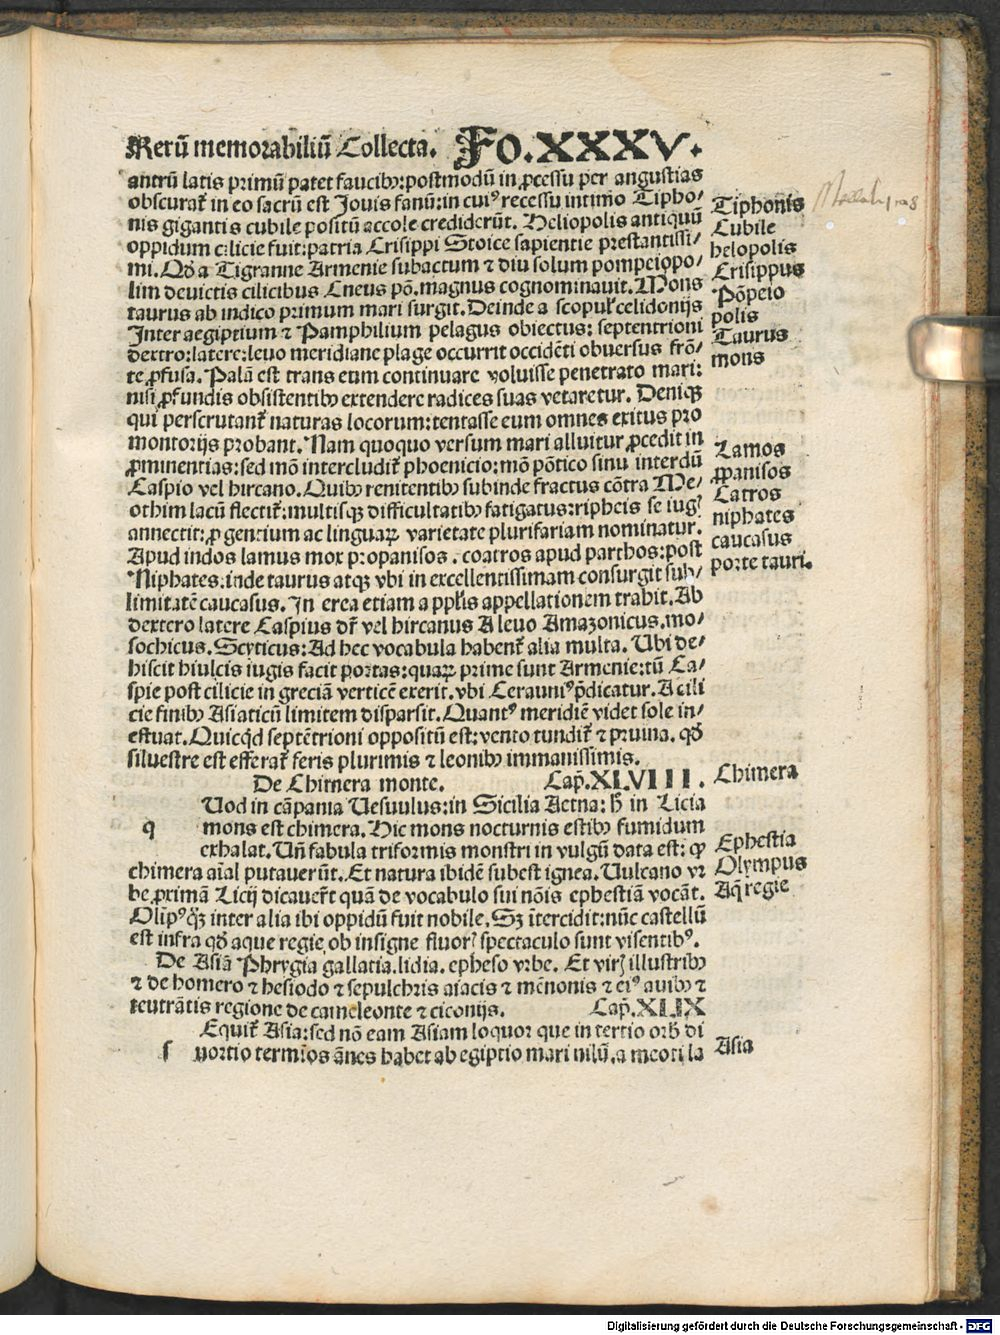 Rerũ memorabiliũ Collecta. Fo.XXXV.
antrũ latis primũ patet faucibꝰ:postmodũ in ꝓcessu per angustias
obscurat᷑ in eo sacrũ est Jouis fanũ:in cuiꝰ recessu intimo Tipho⸗
nis gigantis cubile positũ accole crediderũt. Heliopolis antiquũ
oppidum cilicie fuit:patria Crisippi Stoice sapientie prestantissi⸗
mi. Qđ a Tigranne Armenie subactum ⁊ diu solum pompeiopo⸗
lim deuictis cilicibus Cneus põ. magnus cognominauit. Mons
taurus ab indico primum mari surgit. Deinde a scopul᷑ celidonijs
Inter aegiptium ⁊ Pamphilium pelagus obiectus: septentrioni
dextro:latere:leuo meridiane plage occurrit occidẽti obuersus frõ⸗
te ꝓfusa. Palã est trans eum continuare voluisse penetrato mari:
nisi ꝓfundis obsistentibꝰ extendere radices suas vetaretur. Deniqꝫ
qui perscrutant᷑ naturas locorum:tentasse eum omnes exitus pro
montorijs probant. Nam quoquo versum mari alluitur ꝓcedit in
ꝓminentias:sed mõ intercludit᷑ phoenicio:mõ põtico sinu interdũ
Caspio vel hircano. Quibꝰ renitentibꝰ subinde fractus cõtra Me⸗
othim lacũ flectit᷑:multisqꝫ difficultatibꝰ fatigatus:ripheis se iugꝭ
annectit: ꝓ gentium ac linguaꝝ varietate plurifariam nominatur.
Apud indos lamus mox propanisos. coatros apud parthos:post
Niphates:inde taurus atqꝫ vbi in excellentissimam consurgit sub⸗
limitatẽ caucasus. In erea etiam a ppl᷑is appellationem trabit. Ab
dextero latere Caspius dr̃ vel hircanus A leuo Amazonicus.mo⸗
sochicus. Scyticus: Ad hec vocabula habent᷑ alia multa. Ubi de⸗
hiscit hiulcis iugis facit portas:quaꝝ prime sunt Armenie:tũ Ca⸗
spie post cilicie in greciã verticẽ exerit. vbi Cerauniꝰ p̃dicatur. A cili
cie finibꝰ Asiaticũ limitem disparsit. Quantꝰ meridiẽ videt sole in⸗
estuat. Quicqđ septẽtrioni oppositũ est:vento tundit᷑ ⁊ pruina. qđ
siluestre est efferat᷑ feris plurimis ⁊ leonibꝰ immanissimis.
De Chimera monte. Cap̃.XLVIII.
Uod in cãpania Uesuulus:in Sicilia Aetna: h̃ in Licia
q mons est chimera. Hic mons nocturnis estibꝰ fumidum
exhalat. Uñ fabula triformis monstri in vulgũ data est: ꝙ
chimera aĩal putauerũt. Et natura ibidẽ subest ignea. Uulcano vr
be ꝓximã Licij dicauer̃t quã de vocabulo sui nõis ephestiã vocãt.
Olĩpꝰ qꝫ inter alia ibi oppidũ fuit nobile. Sꝫ ĩtercidit:nũc castellũ
est infra qđ aque regie ob insigne fluorꝭ spectaculo sunt visentibꝰ.
De Asiã Phrygia gallatia.lidia. epheso vrbe. Et virꝭ illustribꝰ
⁊ de homero ⁊ hesiodo ⁊ sepulchris aiacis ⁊ mẽnonis ⁊ eiꝰ auibꝰ ⁊
teutrãtis regione de cameleonte ⁊ ciconijs. Cap̃.XLIX
Equit᷑ Asia:sed nõ eam Asiam loquor que in tertio orb̃ di
s uortio termĩos ãnes habet ab egiptio mari nilũ.a meoti la
Tiphonis
Cubile
helopolis
Crisippus
Põpeio
polis
Taurus
mons
Lamos
ꝓpanisos
Catros
niphates
caucasus
porte tauri.
Chimera
Ephestia
Olympus
Aq̃ regie
Asia
Digitalisierung gefördert durch die Deutsche Forschungsgemeinschaft - DFG